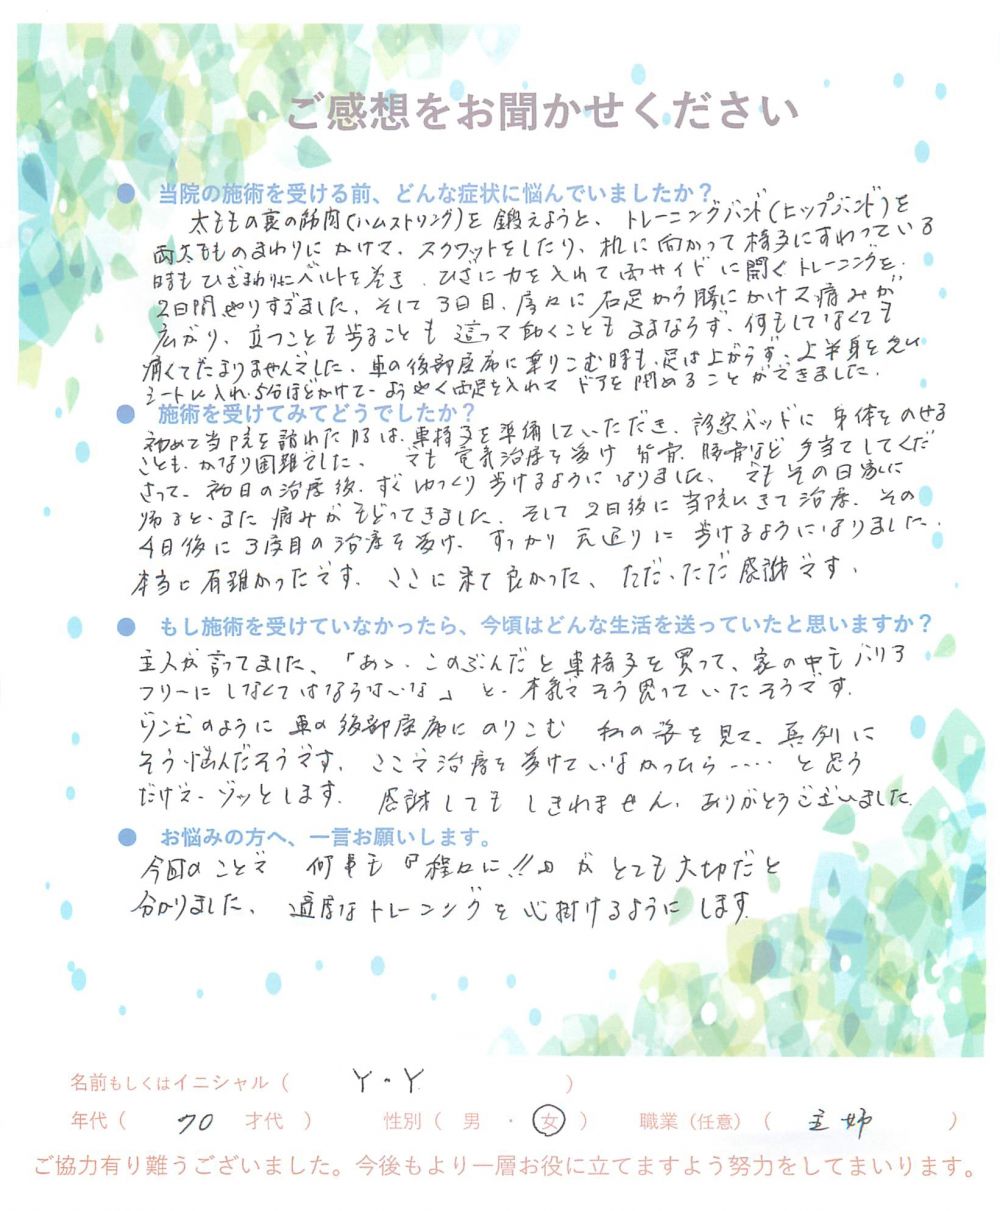 ご感想をお聞かせください
● 当院の施術を受ける前、どんな症状に悩んでいましたか？
太ももの裏の筋肉(ハムストリング)を鍛えようと、トレーニングバンド(ヒップバンド)を
両太もものまわりにかけて、スクワットをしたり、机に向かって椅子にすわっている
時もひざまわりにベルトを巻き、ひざに力を入れて両サイドに開くトレーニングを、
2日間やりすぎました。そして3日目、徐々に右足から腰にかけて痛みが
広がり、立つことも歩ることも這って動くこともままならず、何もしていなくても
痛くてたまりませんでした。車の後部座席に乗りこむ時も、足は上がらず、上半身を先に
シートに入れ、5分ほどかけて、ようやく両足を入れて ドアを閉めることができました。
● 施術を受けてみてどうでしたか？
初めて当院を訪れた時は、車椅子を準備していただき、診察ベッドに身体をのせる
ことも、かなり困難でした。でも電気治療を受け 背骨、腰骨など手当てしてくだ
さって、初日の治療後、すぐゆっくり歩けるようになりました。でもその日家に
帰ると、また痛みがもどってきました。そして2日後に当院にきて治療、その
4日後に3度目の治療を受け、すっかり元通りに歩けるようになりました。
本当に有難かったです。ここに来て良かった、ただ、ただ感謝です。
● もし施術を受けていなかったら、今頃はどんな生活を送っていたと思いますか？
主人が言ってました、「あゝ、このぶんだと車椅子を買って、家の中もバリア
フリーにしなくてはならないな」と、本気でそう思っていたそうです。
ゾンビのように車の後部座席にのりこむ 私の姿を見て、真剣に
そう悩んだそうです。ここで治療を受けていなかったら‥‥と思う
だけで、ゾッとします。感謝してもしきれません。ありがとうございました。
● お悩みの方へ、一言お願いします。
今回のことで 何事も『程々に!!』がとても大切だと
分かりました、適度なトレーニングを心掛けるようにします。
名前もしくはイニシャル（ Y・Y ）
年代（ 70 才代 ） 性別（ 男 ・ 女 ） 職業（任意）（ 主婦 ）
ご協力有り難うございました。今後もより一層お役に立てますよう努力をしてまいります。